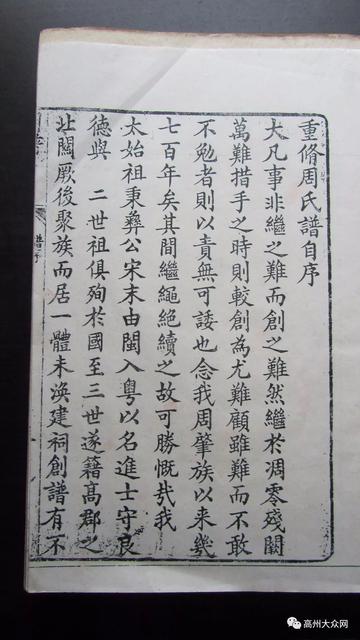 重脩周氏譜自序
大凡事非繼之難而創之難然繼於凋零殘闕
萬難措手之時則較創為尤難顧雖難而不敢
不勉者則以責無可諉也念我周肇族以来幾
七百年矣其間繼繩絕續之故可勝慨㢤我
太始祖秉彝公宋末由閩入粵以名進士守良
德與 二世祖俱殉於國至三世遂籍髙郡之
北關厥後聚族而居一體未渙建祠創譜有不
譜序
高州大众网